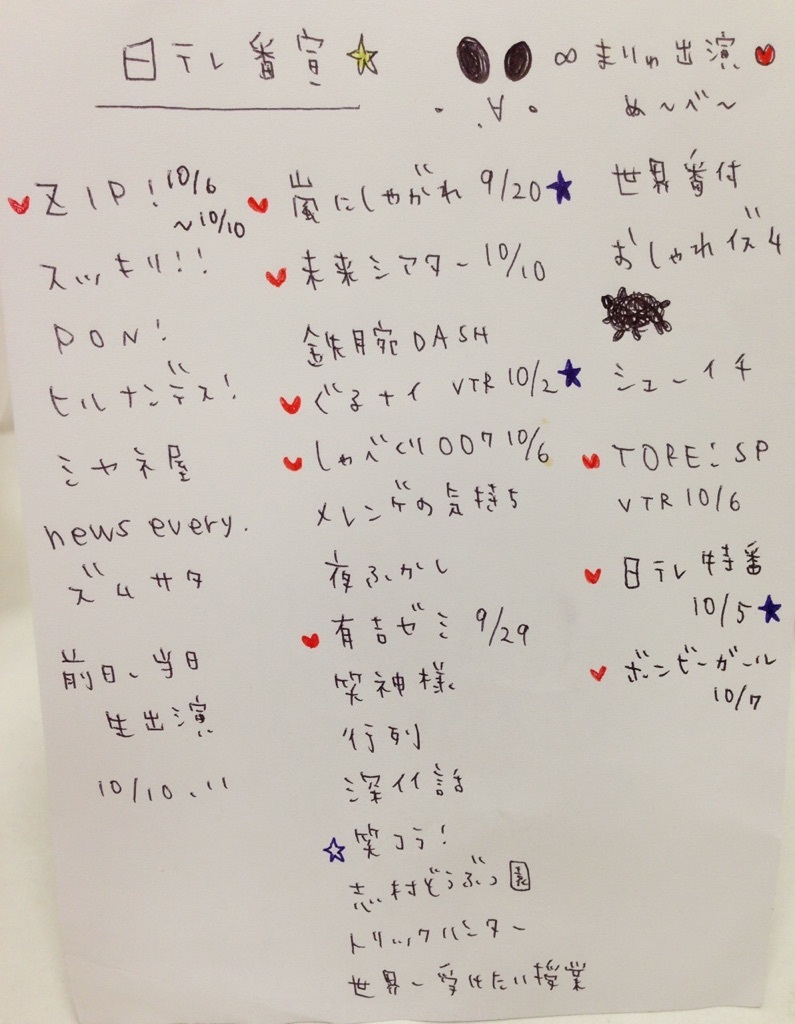 日テレ番宣
まりゅ出演
め〜べ〜
ZIP! 10/6
〜10/10
スッキリ!!
PON!
ヒルナンデス!
ミヤネ屋
news every.
ズムサタ
前日、当日
生出演
10/10、11
嵐にしゃがれ 9/20
未来シアター 10/10
鉄腕DASH
ぐるナイ VTR 10/2
しゃべくり007 10/6
メレンゲの気持ち
夜ふかし
有吉ゼミ 9/29
笑神様
行列
深イイ話
笑コラ!
志村どうぶつ園
トリックハンター
世界一受けたい授業
世界番付
おしゃれイズム
シューイチ
TORE! SP
VTR 10/6
日テレ特番
10/5
ボンビーガール
10/7